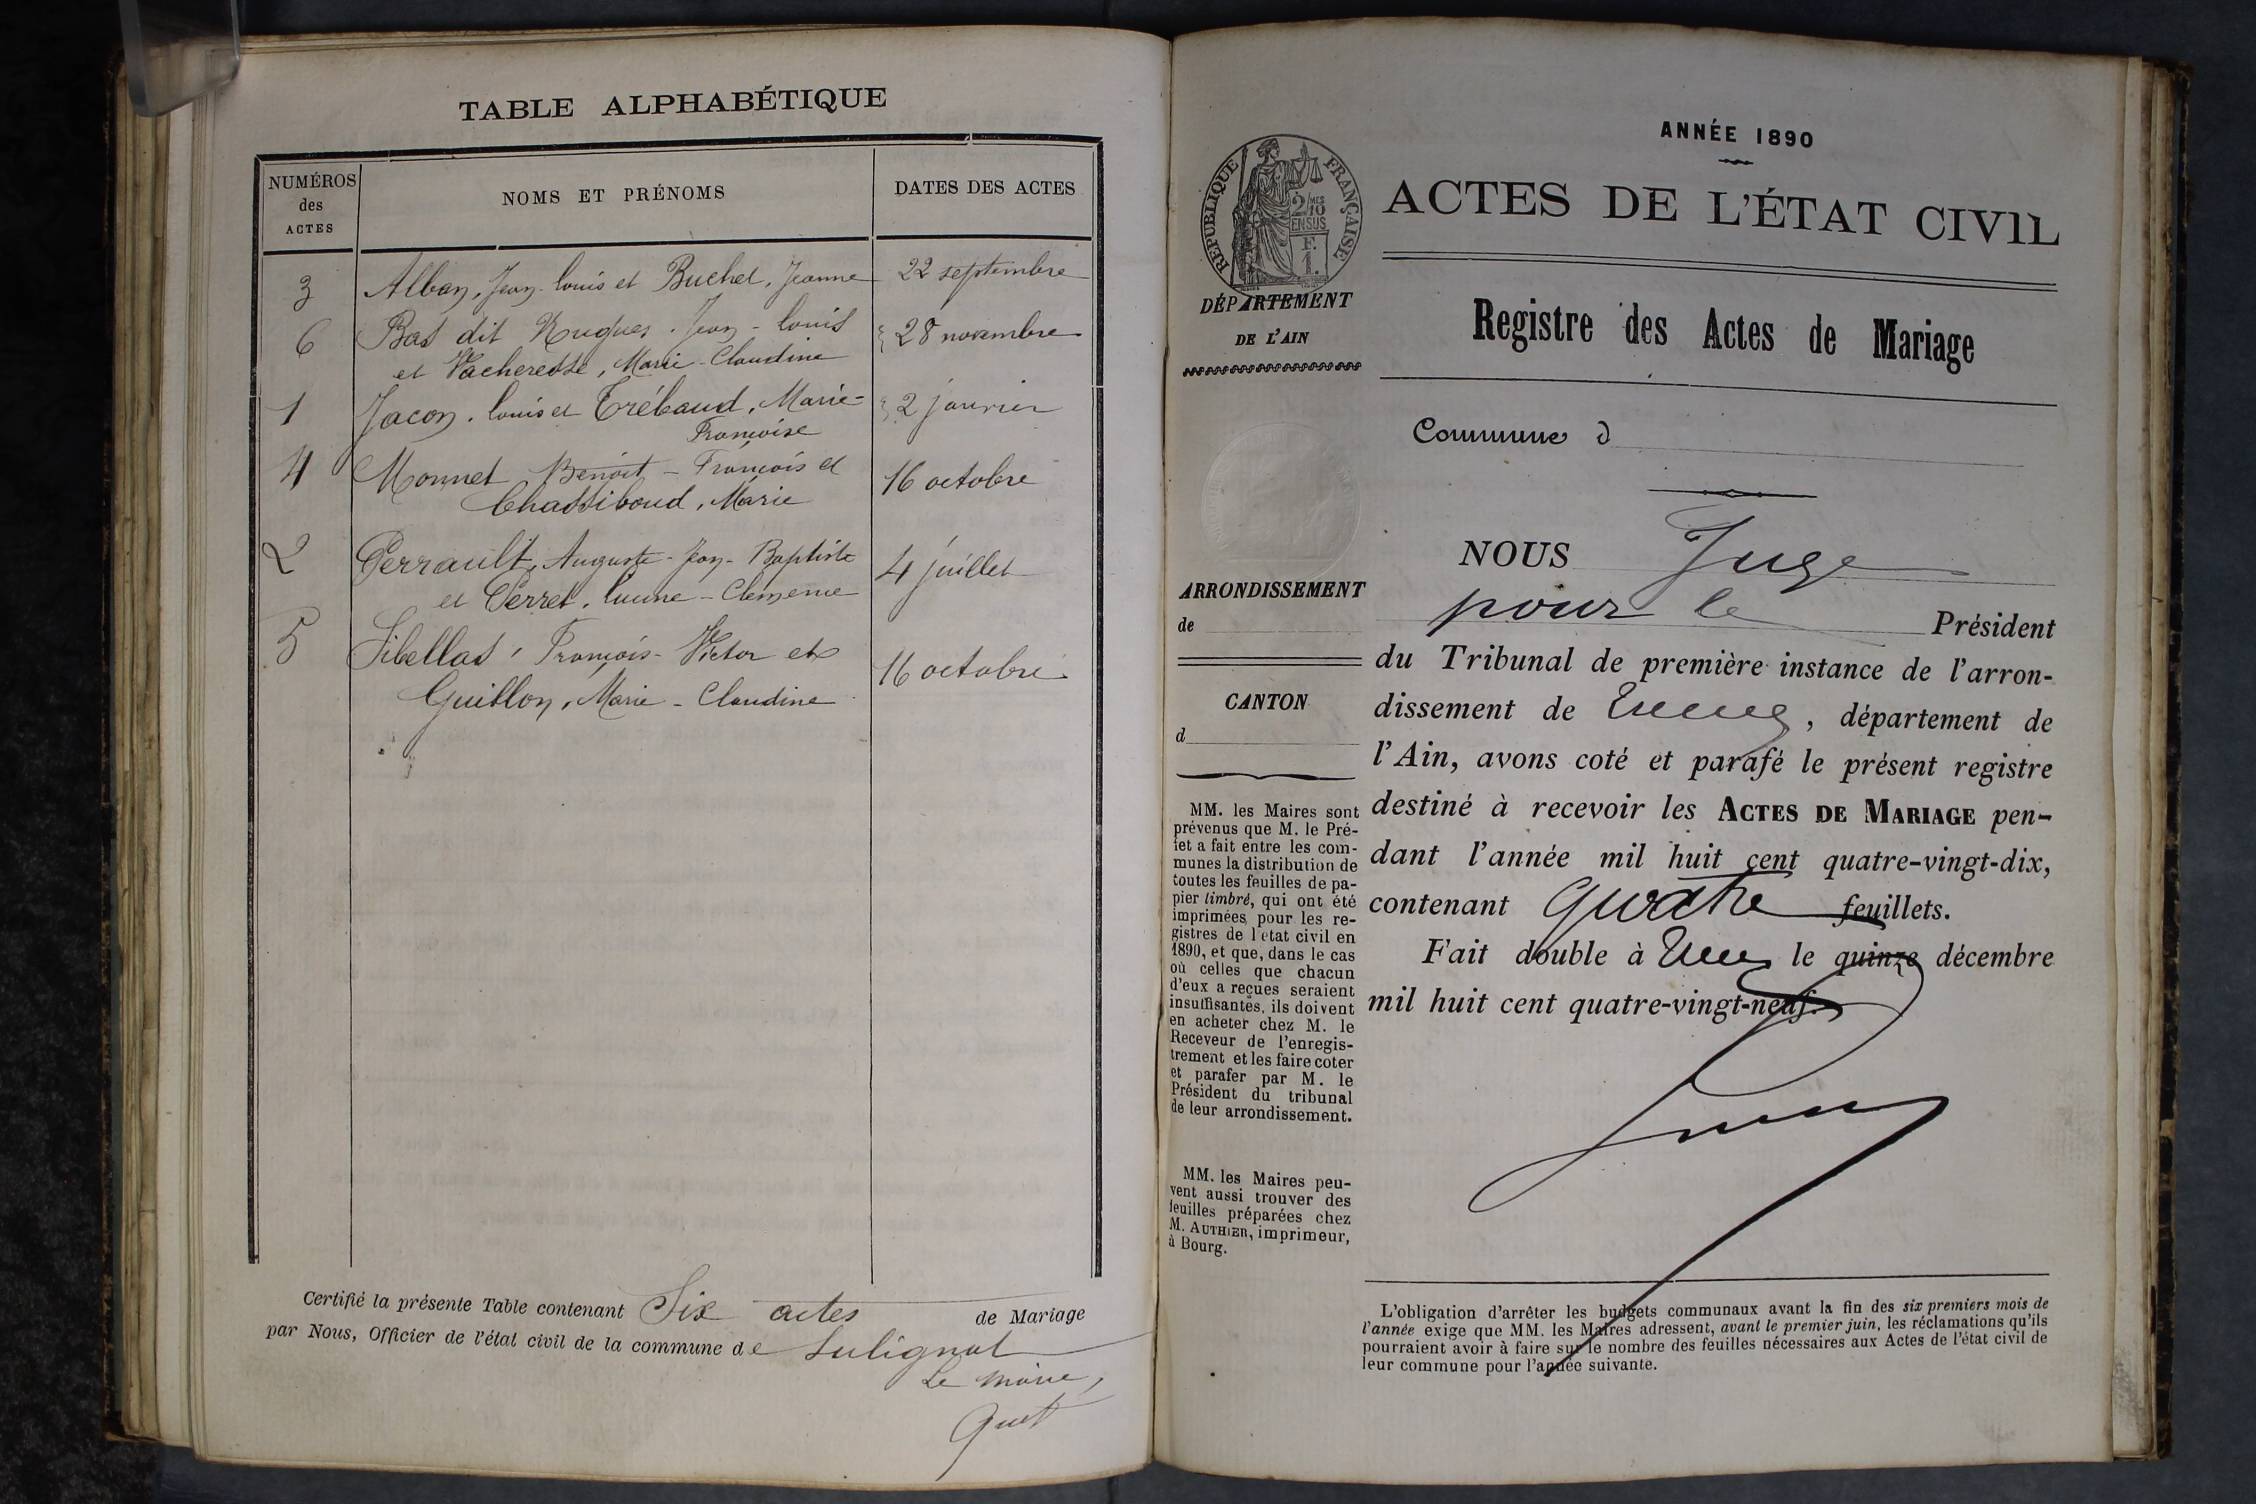 TABLE ALPHABÉTIQUE
NUMÉROS des ACTES
NOMS ET PRÉNOMS
DATES DES ACTES
3 Alban, Jean-Louis et Buchet, Jeanne 22 septembre
6 Bas dit Hugues, Jean-Louis 28 novembre
et Vacheresse, Marie-Claudine
1 Jacon, Louis et Trébaud, Marie- 2 janvier
Françoise
4 Monnet Benoit-François et 16 octobre
Chassiboud, Marie
2 Perrault, Auguste-Jean-Baptiste 4 juillet
et Perret, Clémence
5 Sibellas, François-Victor et 16 octobre
Guillon, Marie-Claudine
Certifié la présente Table contenant Six actes de Mariage
par Nous, Officier de l'état civil de la commune de Sulignat
Le maire,
ANNÉE 1890
ACTES DE L'ÉTAT CIVIL
RÉPUBLIQUE FRANÇAISE
2/10 MES
EN SUS
F.
1.
DÉPARTEMENT
DE L'AIN
Registre des Actes de Mariage
Commune d
ARRONDISSEMENT
de
CANTON
d
MM. les Maires sont
prévenus que M. le Pré-
fet a fait entre les com-
munes la distribution de
toutes les feuilles de pa-
pier timbré, qui ont été
imprimées pour les re-
gistres de l'état civil en
1890, et que, dans le cas
où celles que chacun
d'eux a reçues seraient
insuffisantes, ils doivent
en acheter chez M. le
Receveur de l'enregis-
trement et les faire coter
et parafer par M. le
Président du tribunal
de leur arrondissement.
MM. les Maires peu-
vent aussi trouver des
feuilles préparées chez
M. AUTHIER, imprimeur,
à Bourg.
NOUS Juge
pour le Président
du Tribunal de première instance de l'arron-
dissement de , département de
l'Ain, avons coté et parafé le présent registre
destiné à recevoir les ACTES DE MARIAGE pen-
dant l'année mil huit cent quatre-vingt-dix,
contenant quatre feuillets.
Fait double à le quinze décembre
mil huit cent quatre-vingt-neuf.
L'obligation d'arrêter les budgets communaux avant la fin des six premiers mois de
l'année exige que MM. les Maires adressent, avant le premier juin, les réclamations qu'ils
pourraient avoir à faire sur le nombre des feuilles nécessaires aux Actes de l'état civil de
leur commune pour l'année suivante.